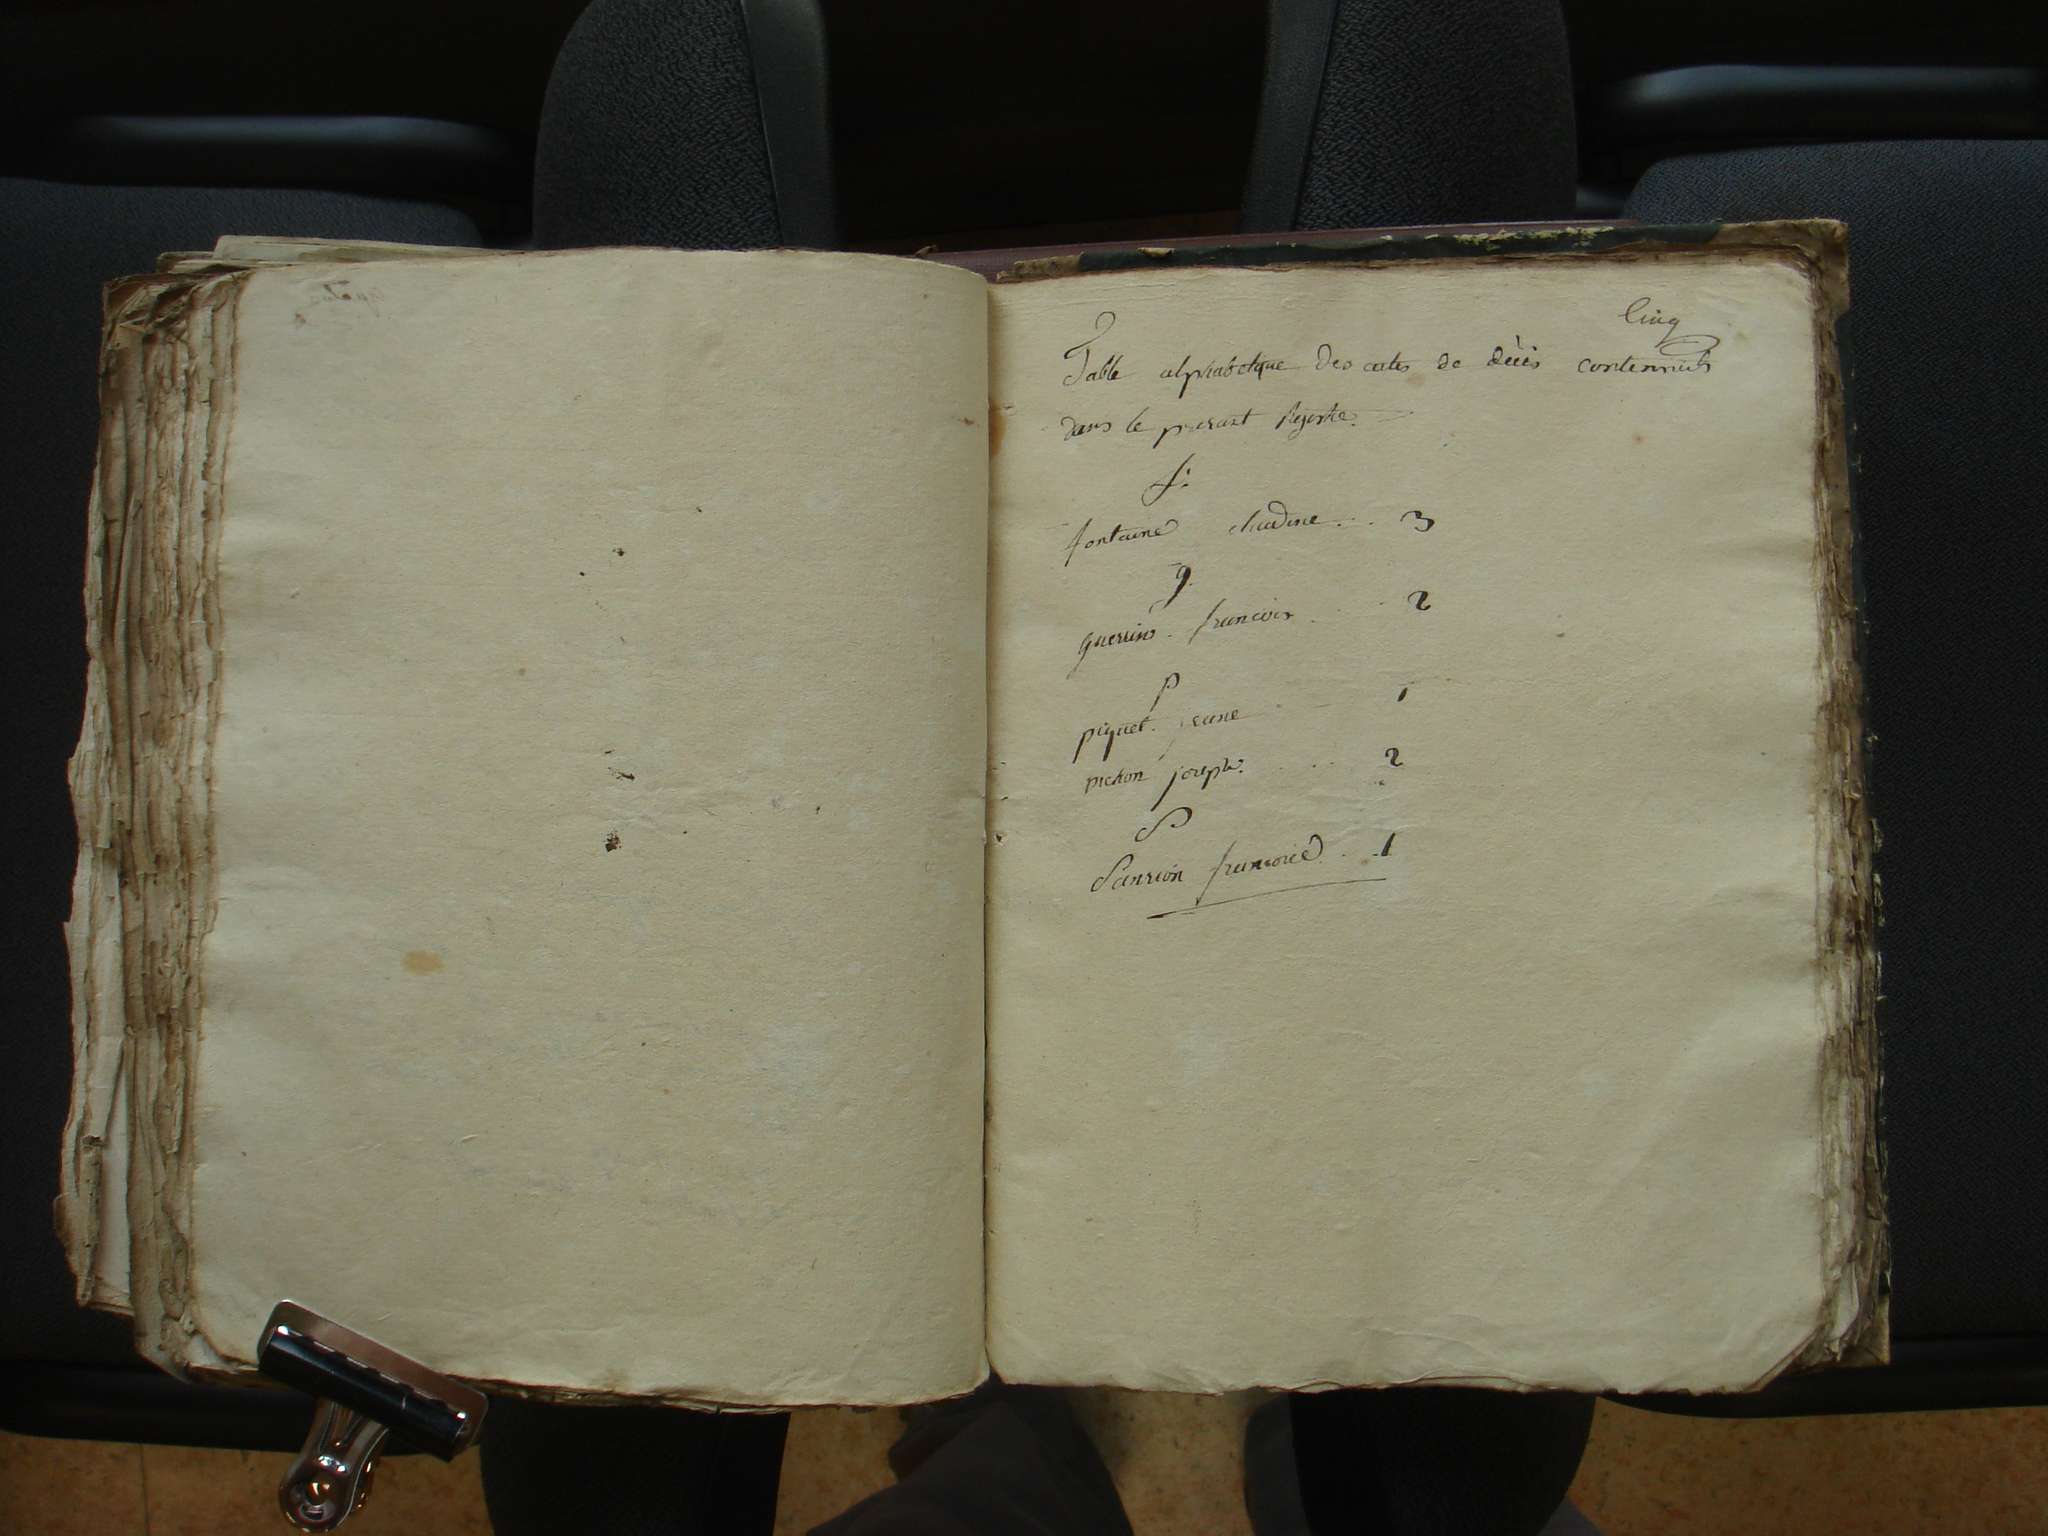 Cinq
Table alphabetique des actes de décès contennuts
dans le présant Registre.
f.
fontaine claudine . . 3
g.
guerin . francois . . 2
p
piquet . jeane 1
pichon joseph . . . 2
S
Sanrion francoise . . 1